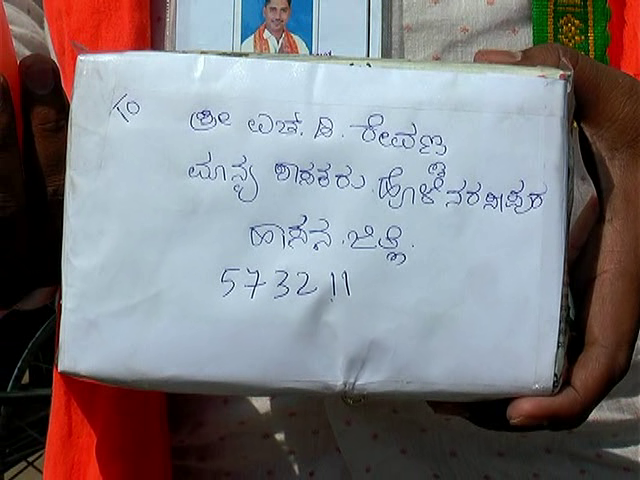 To
ಶ್ರೀ ಎಚ್. ಡಿ. ರೇವಣ್ಣ
ಮಾನ್ಯ ಶಾಸಕರು. ಹೊಳೆನರಸೀಪುರ
ಹಾಸನ. ಜಿಲ್ಲೆ.
573211